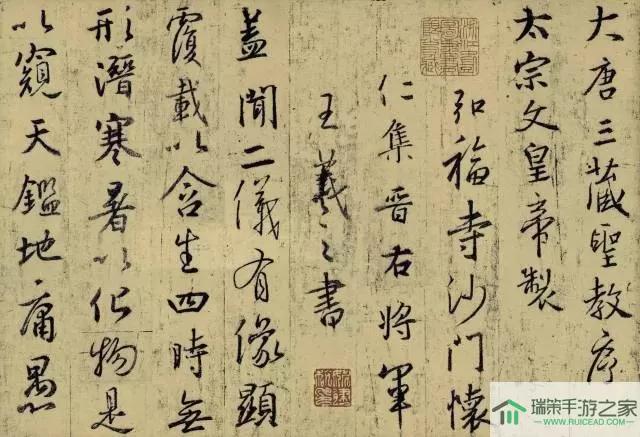 大唐三藏聖教序
太宗文皇帝製
弘福寺沙門懷
仁集晉右將軍
王羲之書
蓋聞二儀有像顯
覆載以含生四時無
形潛寒暑以化物是
以窺天鑑地庸愚
瑞策手游之家
WWW.RUICEAD.COM